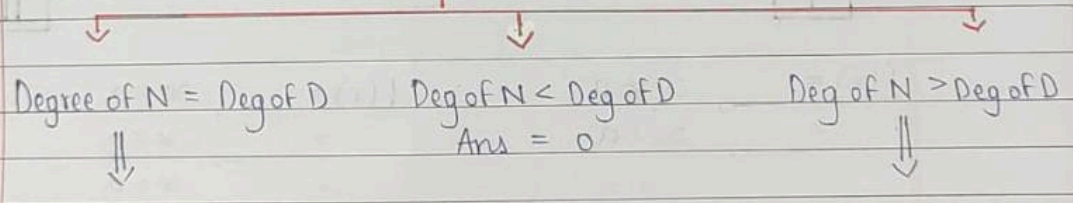 Degree of N = Deg of D Deg of N < Deg of D Deg of N > Deg of D
Ans = 0